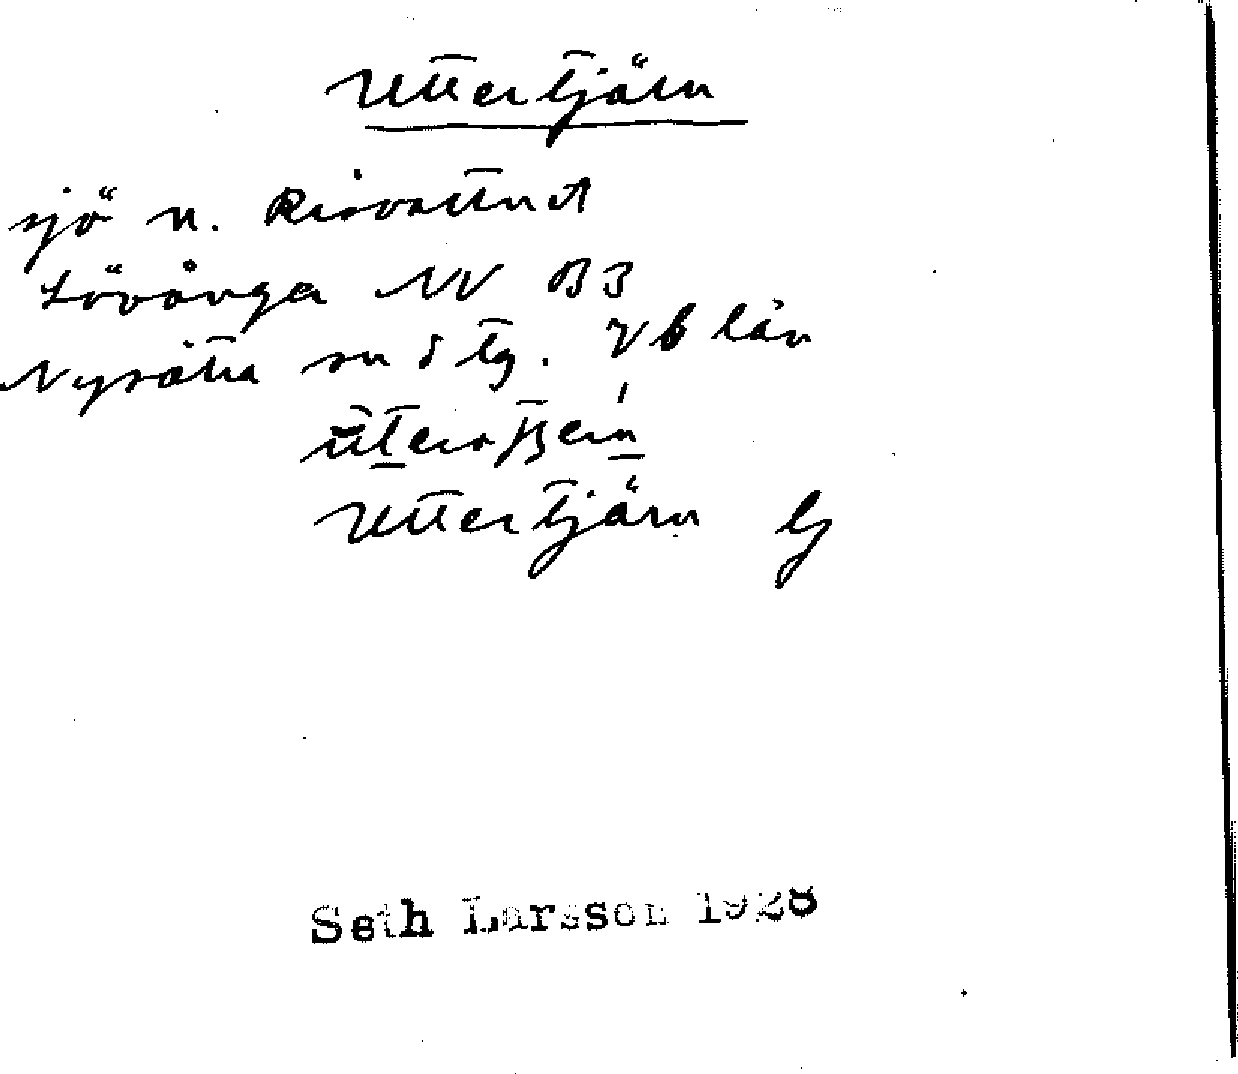 Uttertjärn
sjö n. Risvattnet
Lövånga NV B3
Nysätra sn o tg. Vb län
Uttertjärn
Seth Larsson 1928